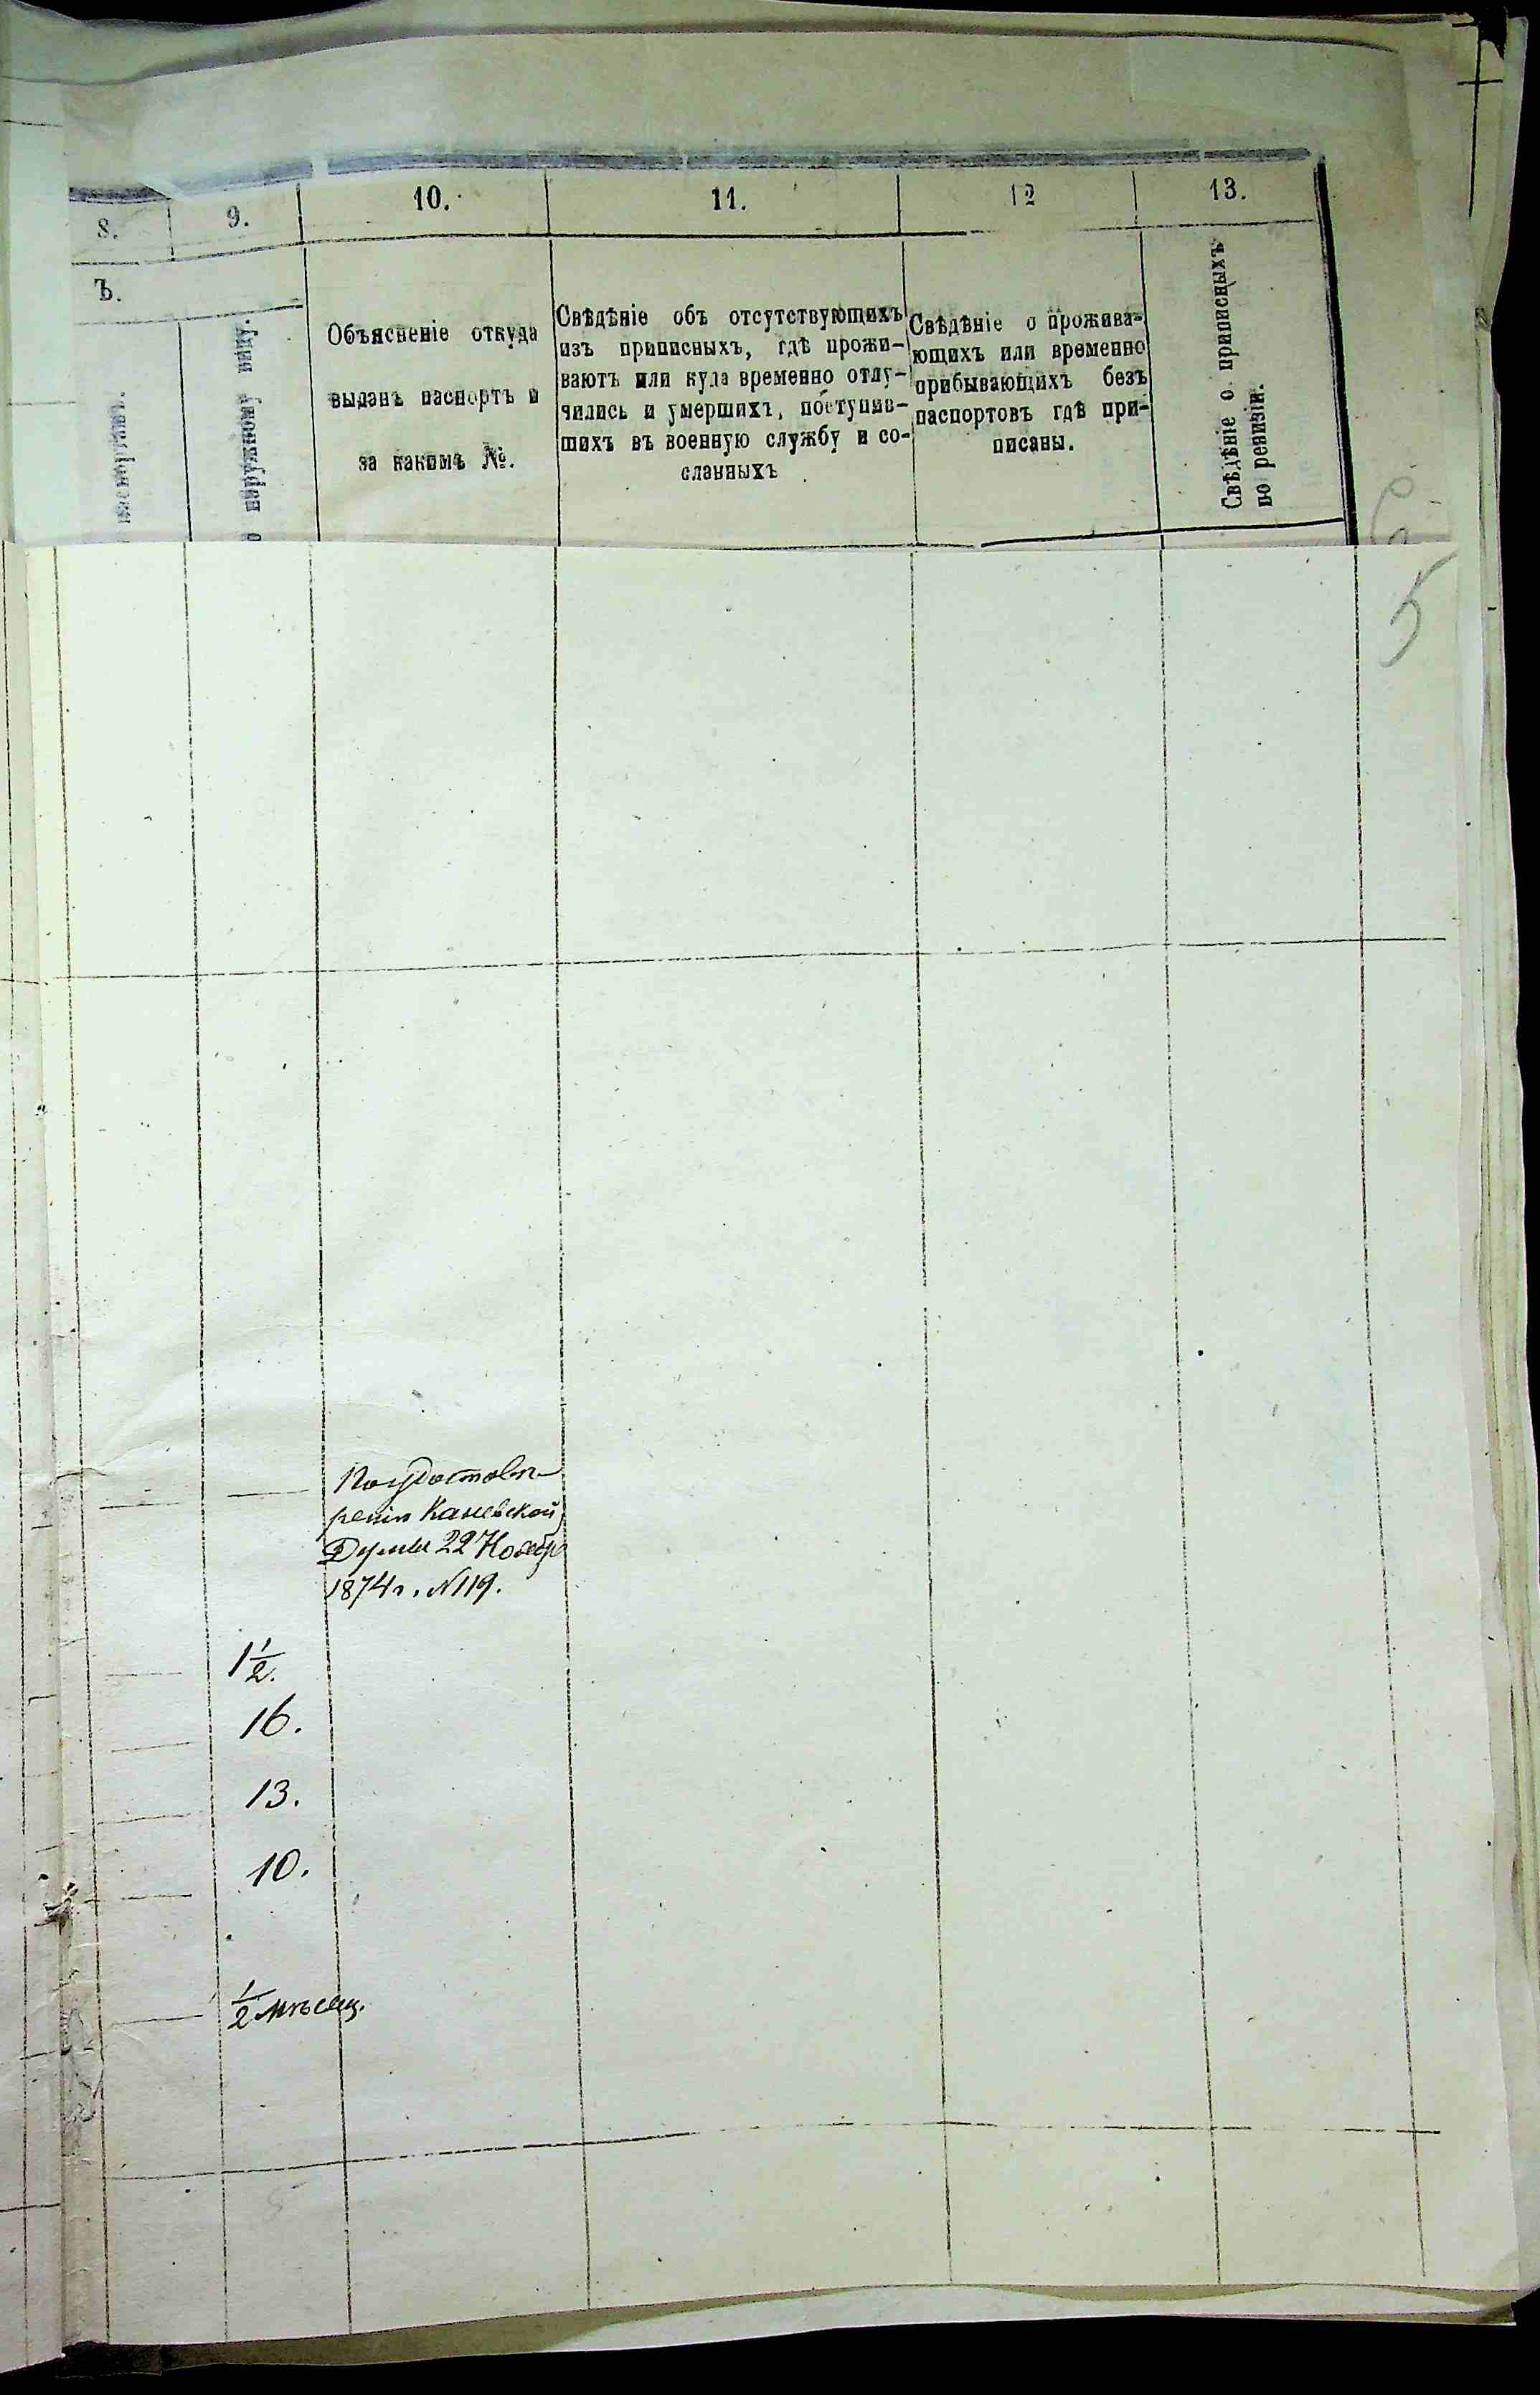 8.
9.
10.
11.
12
13.
Ъ.
паспортамъ.
о наружному виду.
Объясненіе откуда
выданъ паспортъ и
за какимъ №.
Свѣдѣніе объ отсутствующихъ
изъ приписныхъ, гдѣ прожи-
ваютъ или куда временно отлу-
чились и умершихъ, поступив-
шихъ въ военную службу и со-
сланныхъ
Свѣдѣніе о прожива-
ющихъ или временно
прибывающихъ безъ
паспортовъ гдѣ при-
писаны.
Свѣдѣніе о приписныхъ
по ревизіи.
5
По удостовѣ-
ренію Каневской
Думы 22 Ноября
1874 г. N 119.
1 1/2.
16.
13.
10.
1/2 мѣсяц.